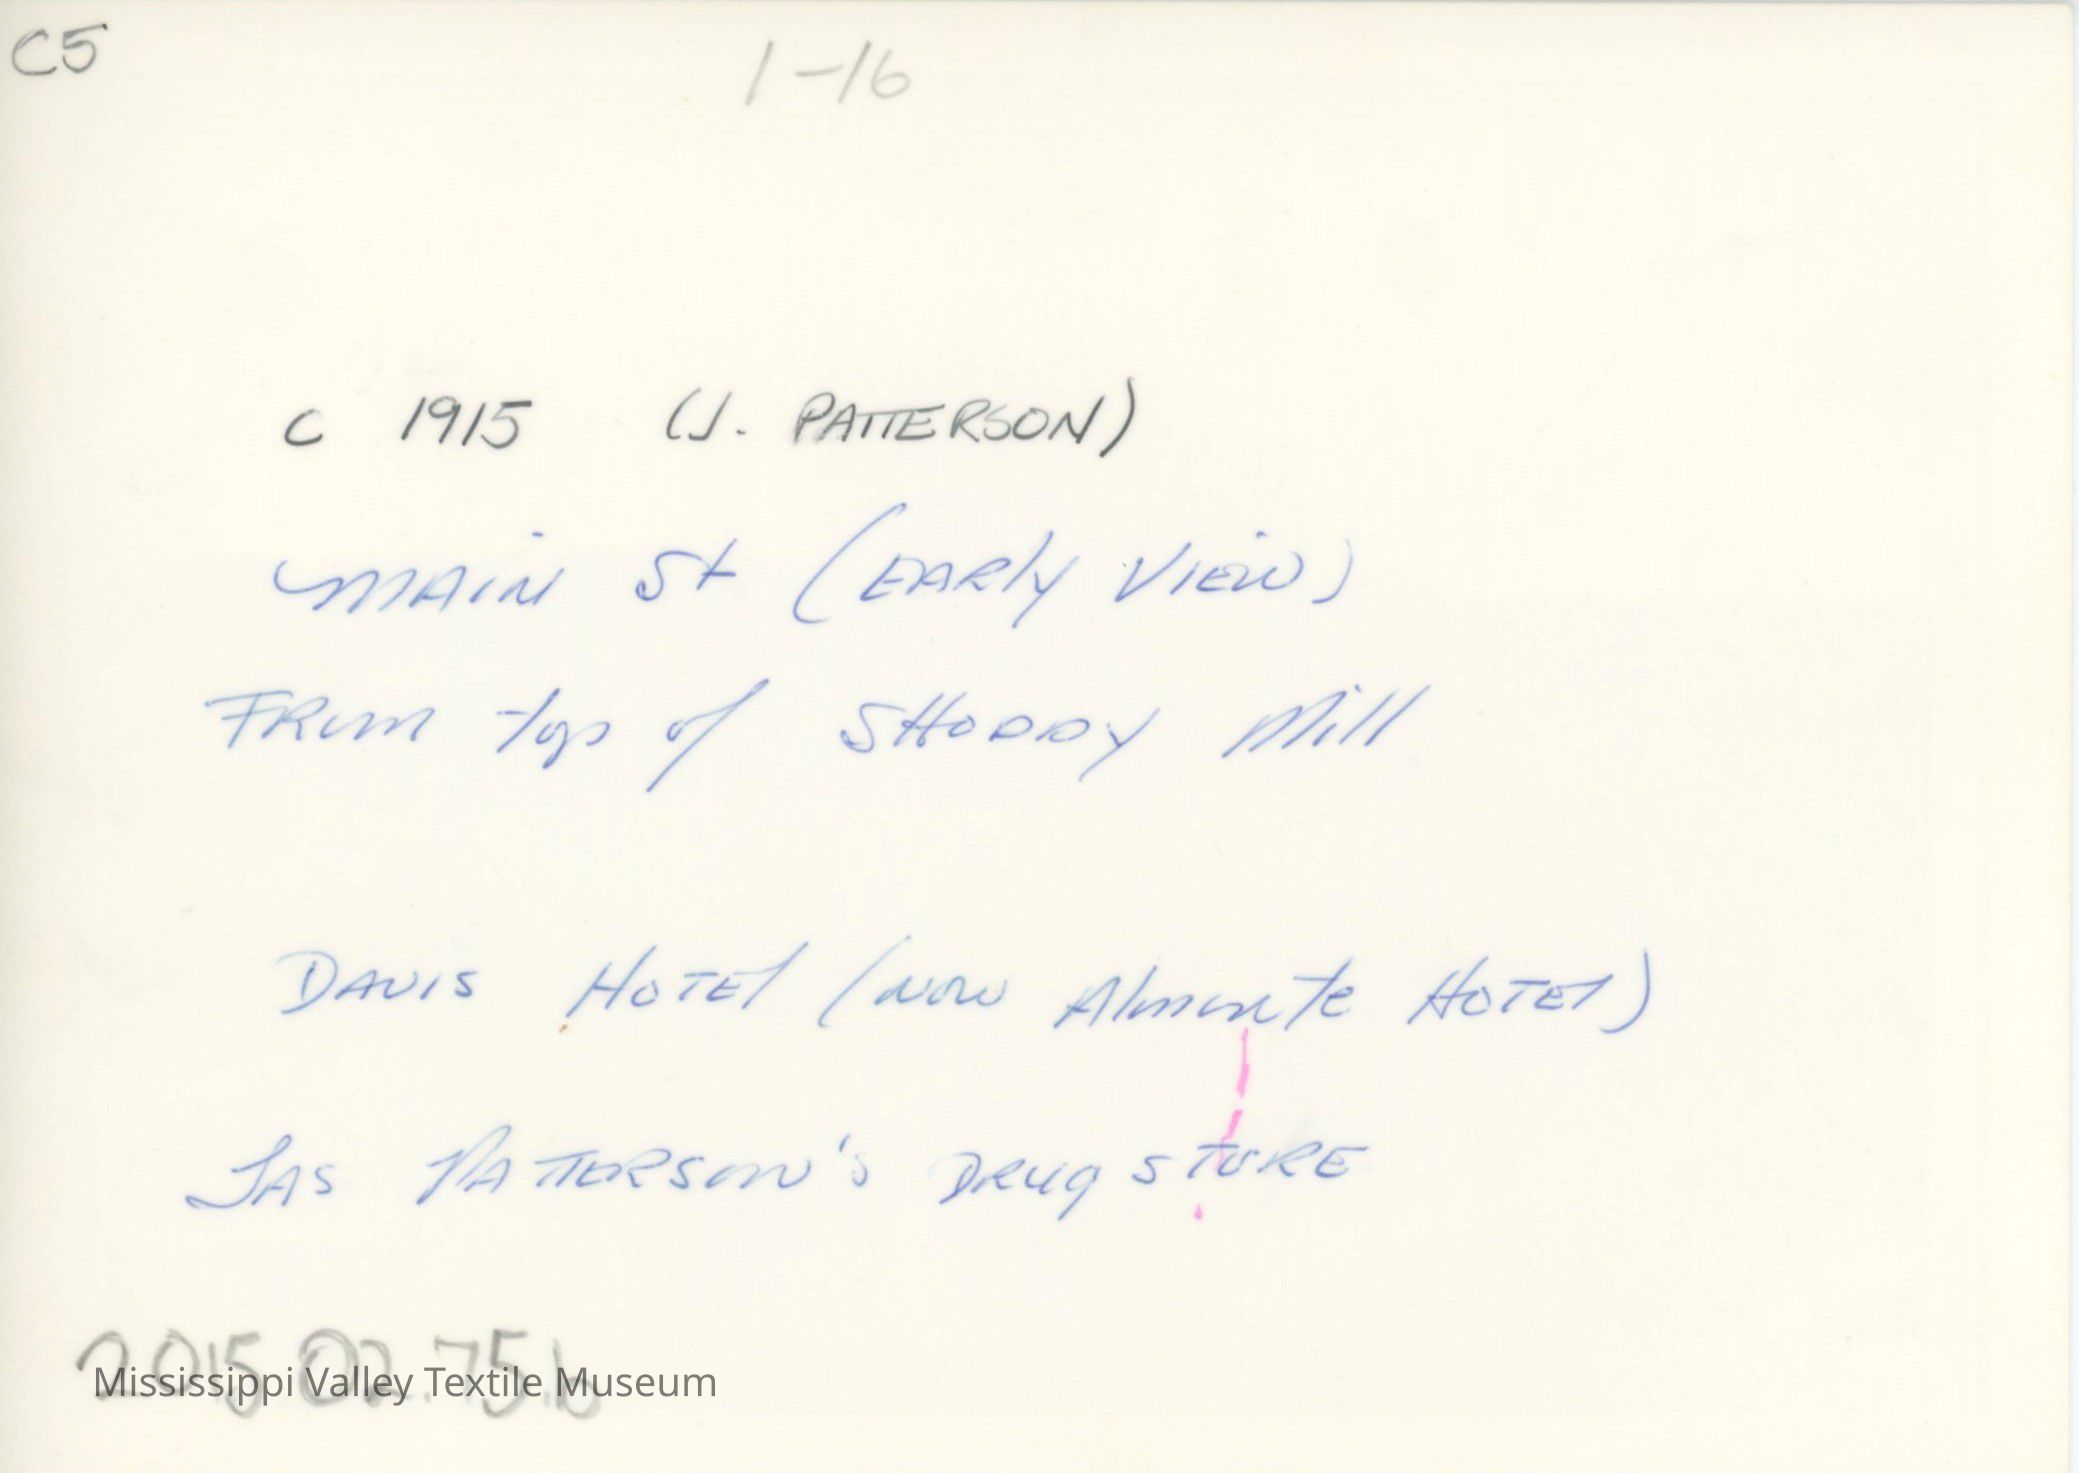 C5
1-16
c 1915 (J. PATTERSON)
MAIN St (EARly VIEW)
FROM top of SHODDY Mill
DAVIS HOTEl (NOW Almonte HOTEl)
JAS PATTERSON'S DRUG STORE
2015.02.75.b
Mississippi Valley Textile Museum